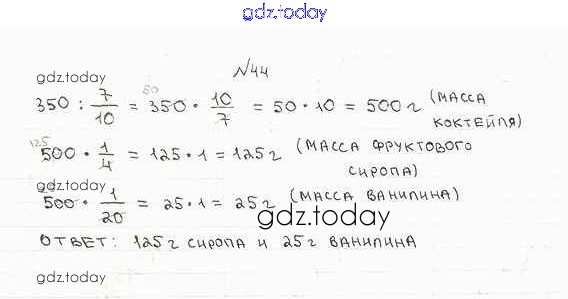 gdz.today
№44
gdz.today
350 : 7/10 = 350 · 10/7 = 50 · 10 = 500 г (МАССА
50
КОКТЕЙЛЯ)
125
500 · 1/4 = 125 · 1 = 125 г (МАССА ФРУКТОВОГО
СИРОПА)
gdz.today
500 · 1/20 = 25 · 1 = 25 г (МАССА ВАНИЛИНА)
gdz.today
ОТВЕТ: 125 г СИРОПА И 25 г ВАНИЛИНА
gdz.today